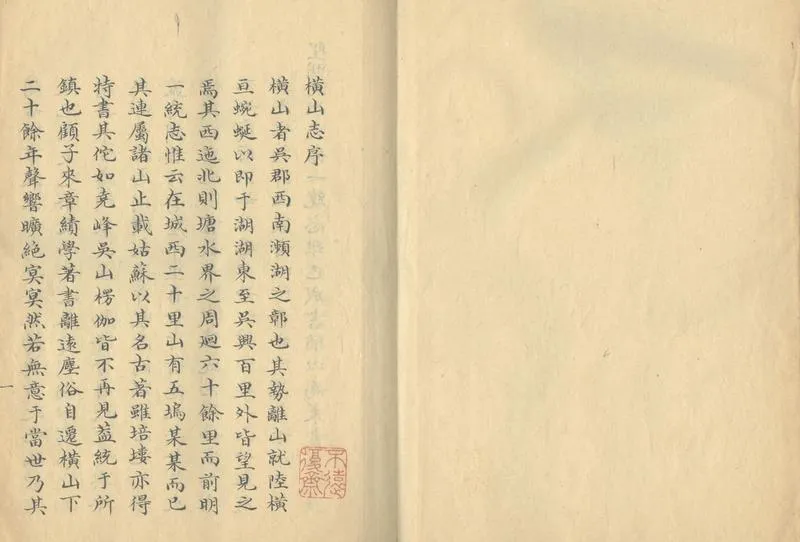 橫山志序
橫山者吳郡西南瀕湖之鄣也其勢離山就陸橫
亘蜿蜒以即于湖湖東至吳興百里外皆望見之
焉其西迤北則塘水界之周廻六十餘里而前明
一統志惟云在城西二十里山有五塢某某而已
其連屬諸山止載姑蘇以其名古著雖培塿亦得
特書其佗如堯峰吳山楞伽皆不再見葢統于所
鎮也顧子來章績學著書離遠塵俗自遷橫山下
二十餘年聲響曠絕㝠㝠然若無意于當世乃其
一
不遠復齋